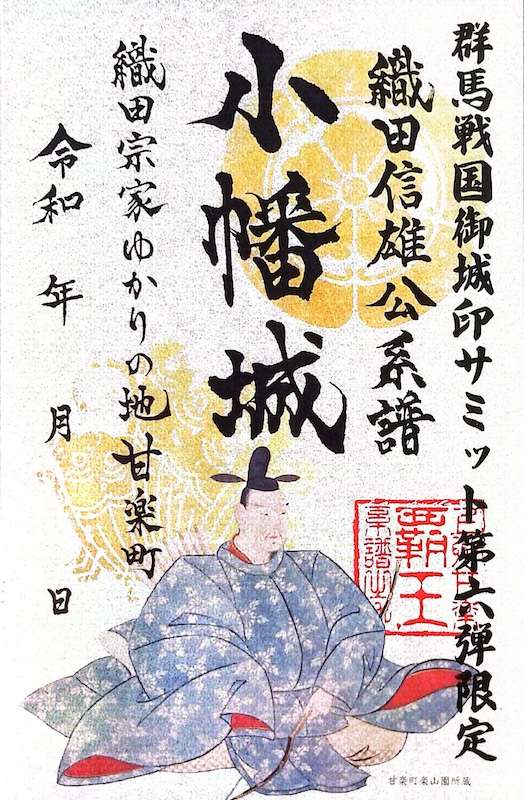 群馬戦国御城印サミット第六弾限定
織田信雄公系譜
小幡城
織田宗家ゆかりの地 甘楽町
令和 年 月 日
覇王
甘楽町楽山園所蔵